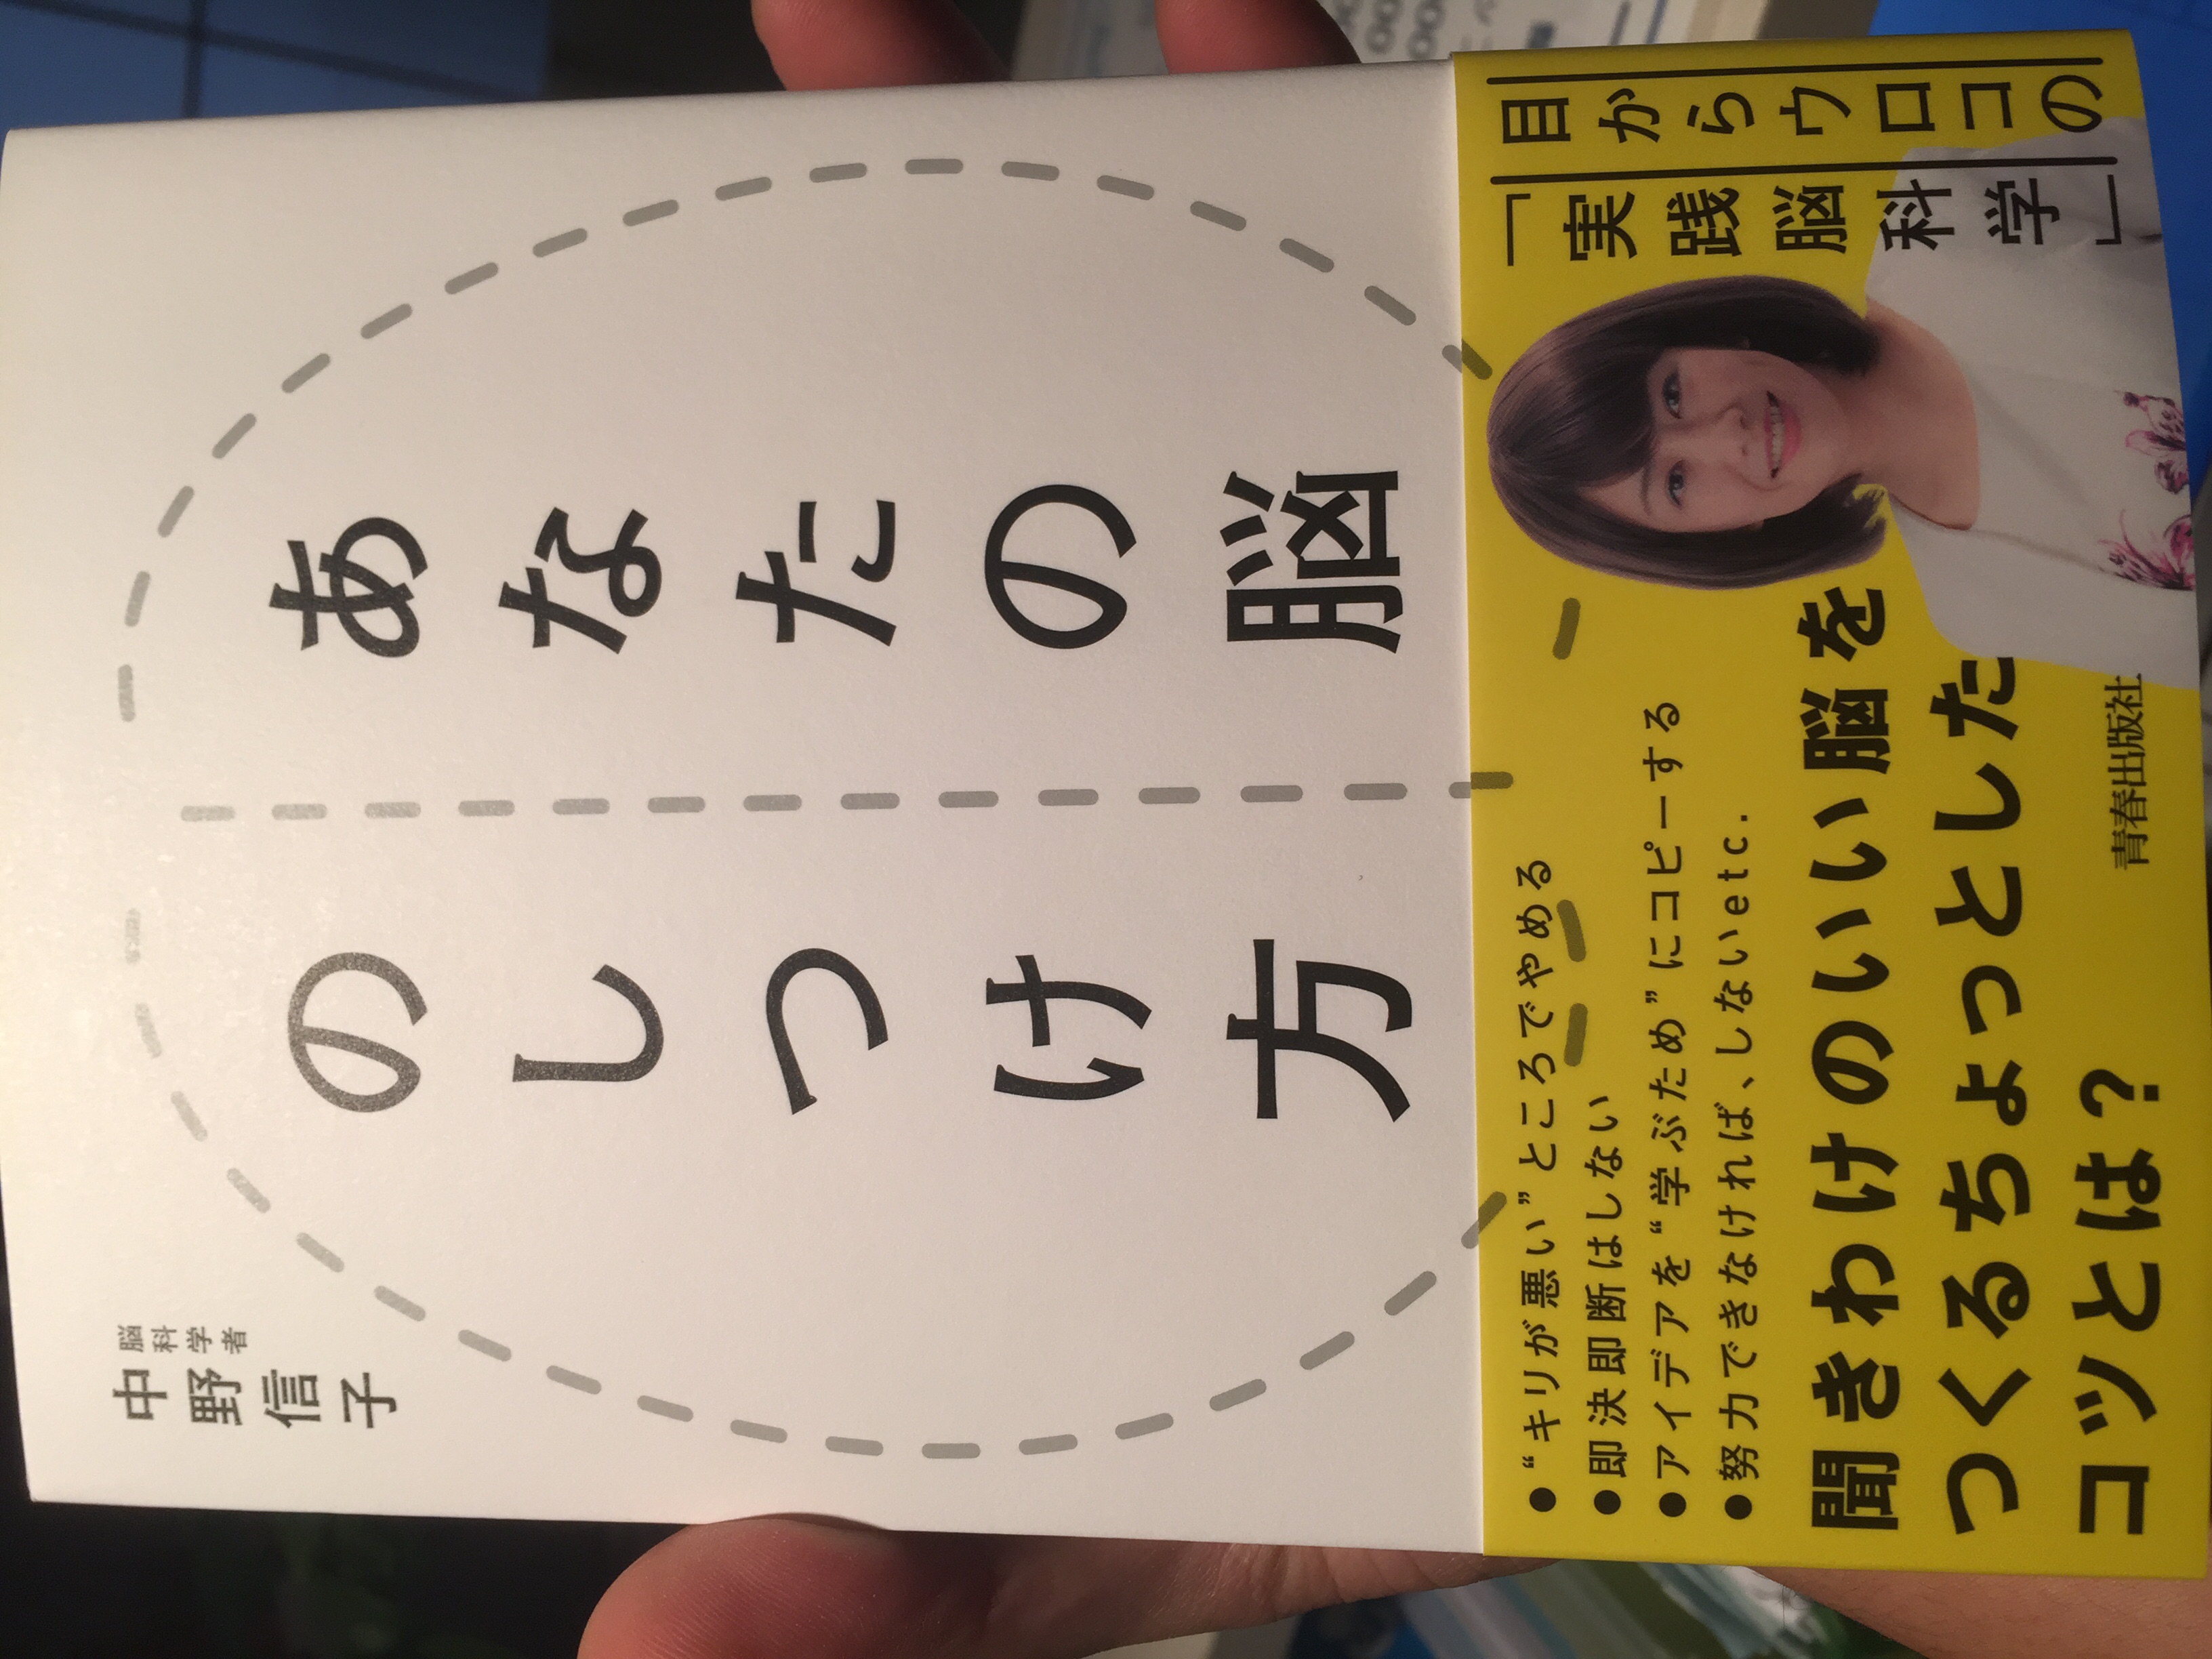 脳科学者
中野信子
あなたの脳
のしつけ方
目からウロコの
「実践脳科学」
●“キリが悪い”ところでやめる
●即決即断はしない
●アイデアを“学ぶため”にコピーする
●努力できなければ、しないetc.
聞きわけのいい脳を
つくるちょっとした
コツとは?
青春出版社